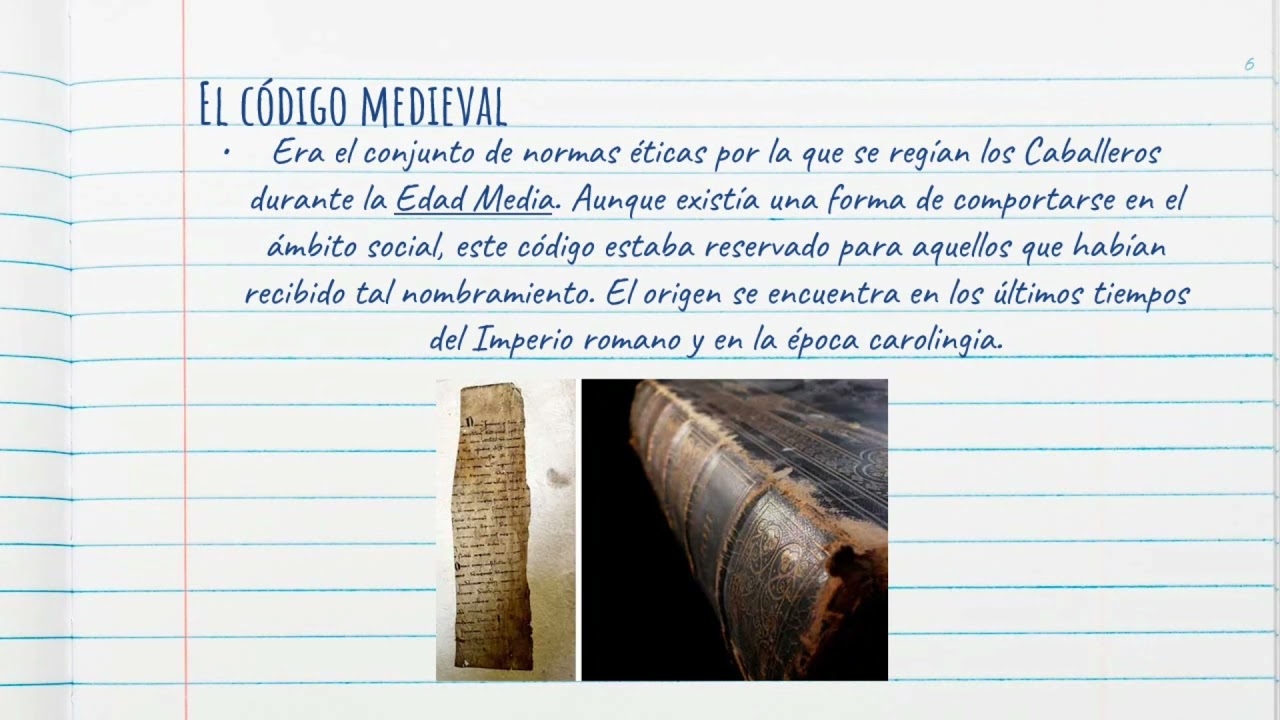 6
El código medieval
• Era el conjunto de normas éticas por la que se regían los Caballeros
durante la Edad Media. Aunque existía una forma de comportarse en el
ámbito social, este código estaba reservado para aquellos que habían
recibido tal nombramiento. El origen se encuentra en los últimos tiempos
del Imperio romano y en la época carolingia.